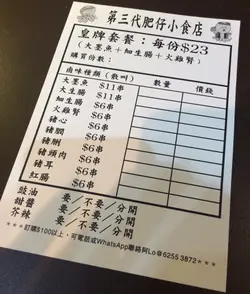 第三代肥仔小食店
皇牌套餐：每份$23
(大墨魚＋細生腸＋大雞腎)
購買份數：
鹵味種類(散叫) 數量 價錢
大墨魚 $11串
大生腸 $11串
細生腸 $6串
大雞腎 $6串
豬心 $6串
豬膶 $6串
豬脷 $6串
豬頭肉 $6串
豬耳 $6串
紅腸 $6串
豉油 要／不要／分開
甜醬 要／不要／分開
芥辣 要／不要／分開
***訂購$100以上，可電話或WhatsApp聯絡阿Lo@6255 3872***